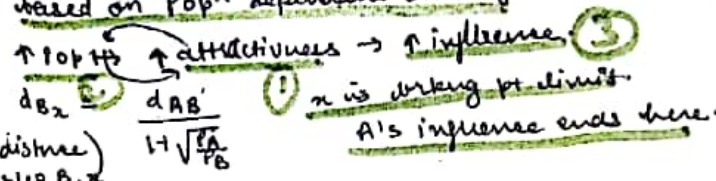 based on popⁿ
↑ popⁿ ↑ attractivness → ↑ influence. ③
d_Bx = d_AB / 1+√(P_A/P_B) ① x is brkng pt limit.
A's influence ends here.
distnce)
B. x